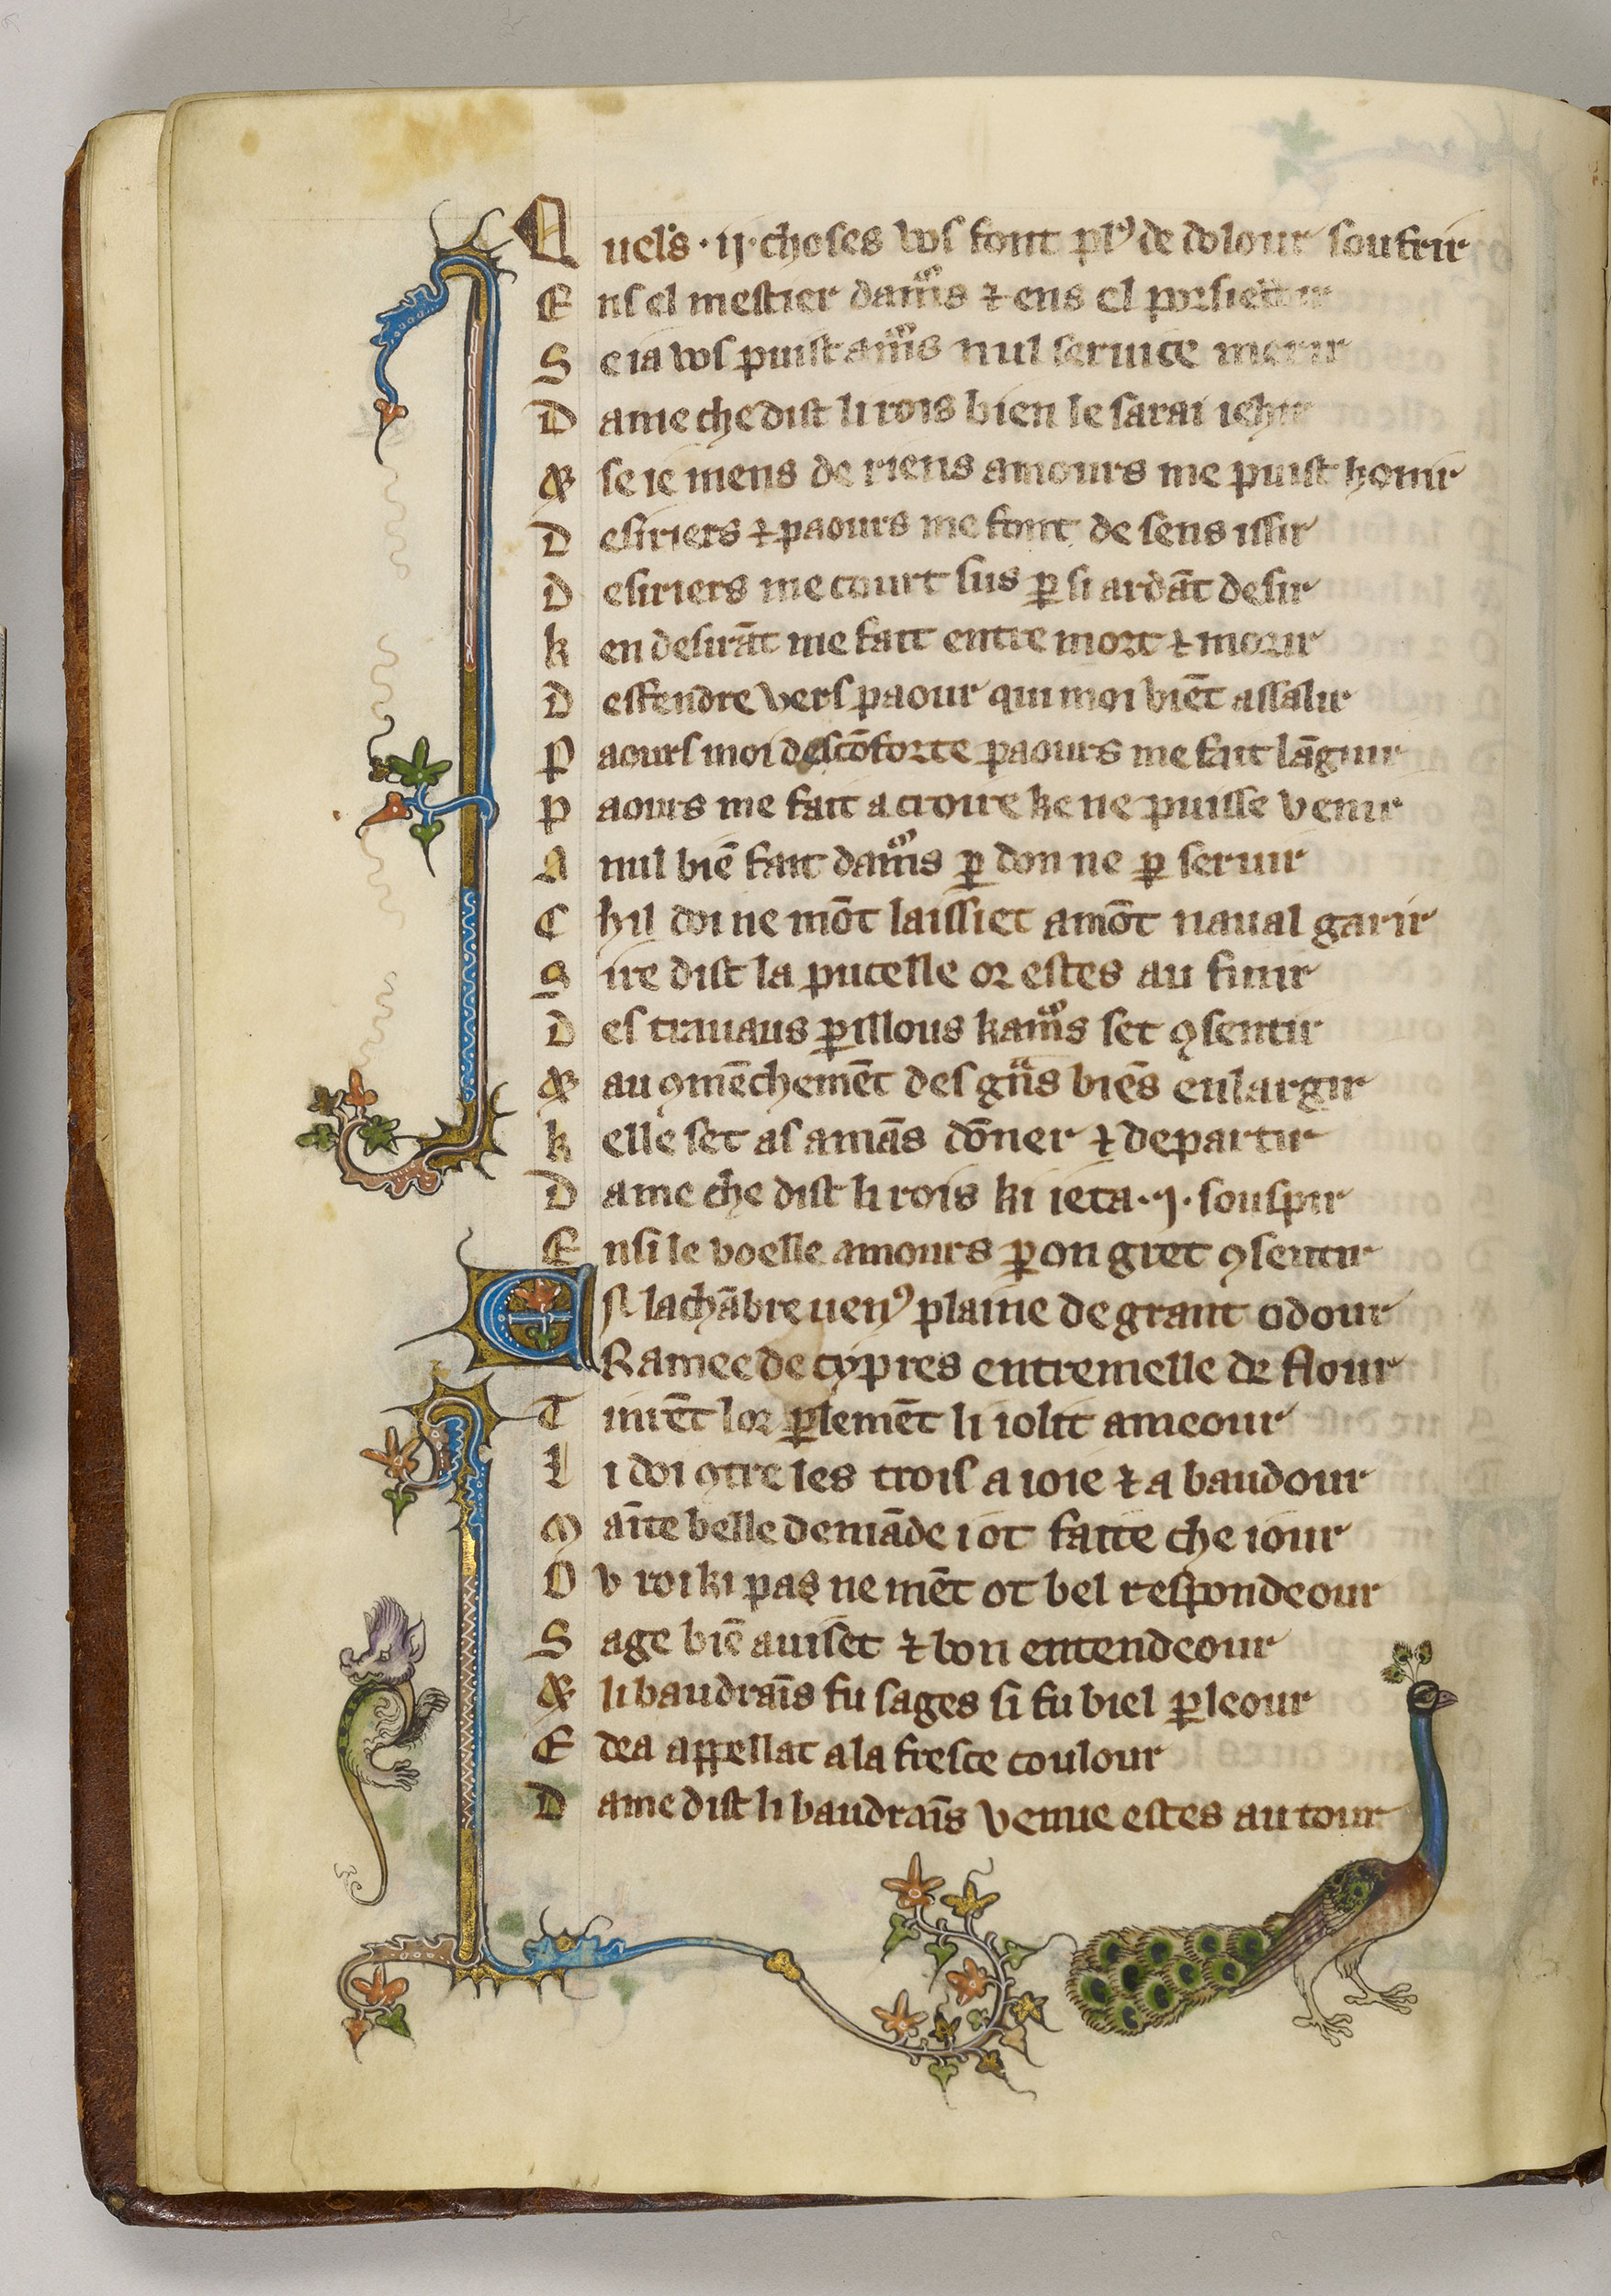 Quels · ij · choses vos font plꝰ de dolour soufrir
Ens el mestier damͬs ⁊ ens el porsieuir
Se ia vos puist amͬs nul seruice merir
Dame che dist li rois bien le sarai iehir
Et se ie mens de riens amours me puist honir
Desiriers ⁊ paours me font de sens issir
Desiriers me court sus ꝑ si ardāt desir
ken desirāt me fait entre mort ⁊ morir
Deffendre vers paour qui moi viēt assalir
Paours moi descōforte paours me fait lāguir
Paours me fait acroire ke ne puisse venir
A nul biē fait damͬs ꝑ don ne ꝑ seruir
Chil doi ne mōt laissiet amōt naual garir
Sire dist la pucelle or estes au finir
Des trauaus ꝑillous kamͬs set ꝯsentir
Et au ꝯmēchemēt des gͣns biēs enlargir
kelle set as amās dōner ⁊ departir
Dame che dist li rois ki ieta · j · souspir
Ensi le voelle amours ꝑ on gret ꝯsentir
En la chābre uenꝰ plaine de grant odour
Ramee de cypres entremelle de flour
Tinrēt lor ꝑlemēt li iolit ameour
Li doi ꝯtre les trois a ioie ⁊ a baudour
Mainte belle demāde i ot faite che iour
Ou roi ki pas ne mēt ot bel respondeour
Sage biē auiset ⁊ bon entendeour
Et li baudrais fu sages si fu biel ꝑleour
Edea appellat a la fresce coulour
Dame dist li baudrais venue estes au tour